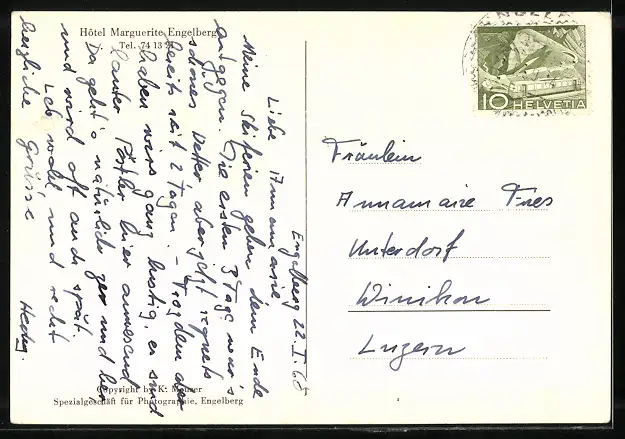 Hôtel Marguerite Engelberg
Tel. 74 13
Engelberg 22. I. 60
Liebe Annamarie
Meine Skiferien gehen dem Ende
entgegen. Die ersten 3 Tage war's
schönes Wetter aber jetzt regnets
bereits seit 2 Tagen. – Trozdem aber
haben wirs ganz lustig, es sind
lauter Pöstler hier anwesend
Da geht's natürlich zer und her
und wird oft auch spät.
Leb wohl, und recht
herzliche Grüsse
Hedy.
Copyright by K. Meuser
Spezialgeschäft für Photographie, Engelberg
10 HELVETIA
Fräulein
Annamarie Fries
Unterdorf
Winikon
Luzern